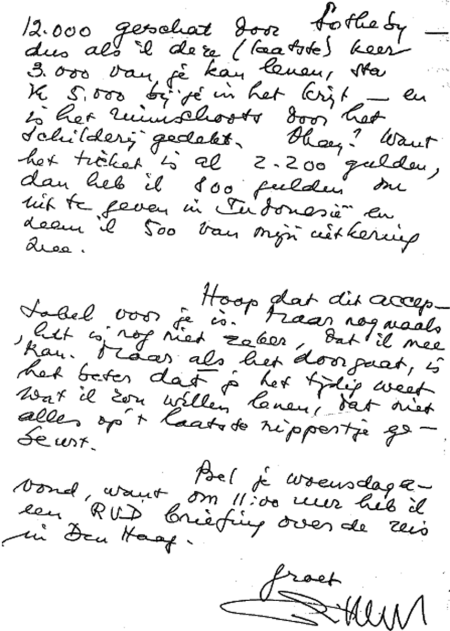 12.000 geschat door Sotheby —
dus als ik deze (laatste) keer
3.000 van je kan lenen, sta
ik 5.000 bij je in het krijt — en
is het ruimschoots door het
schilderij gedekt. Okay? Want
het ticket is al 2.200 gulden,
dan heb ik 800 gulden om
uit te geven in Indonesië en
neem ik 500 van mijn uitkering
mee.
Hoop dat dit accep-
tabel voor je is. Maar nogmaals
, het is nog niet zeker, dat ik mee
kan. Maar als het doorgaat, is
het beter dat je het tijdig weet
wat ik zou willen lenen, dat niet
alles op 't laatste nippertje ge-
beurt.
Bel je woensdaga-
vond, want om 11:00 uur heb ik
een RVD briefing over de reis
in Den Haag.
groet